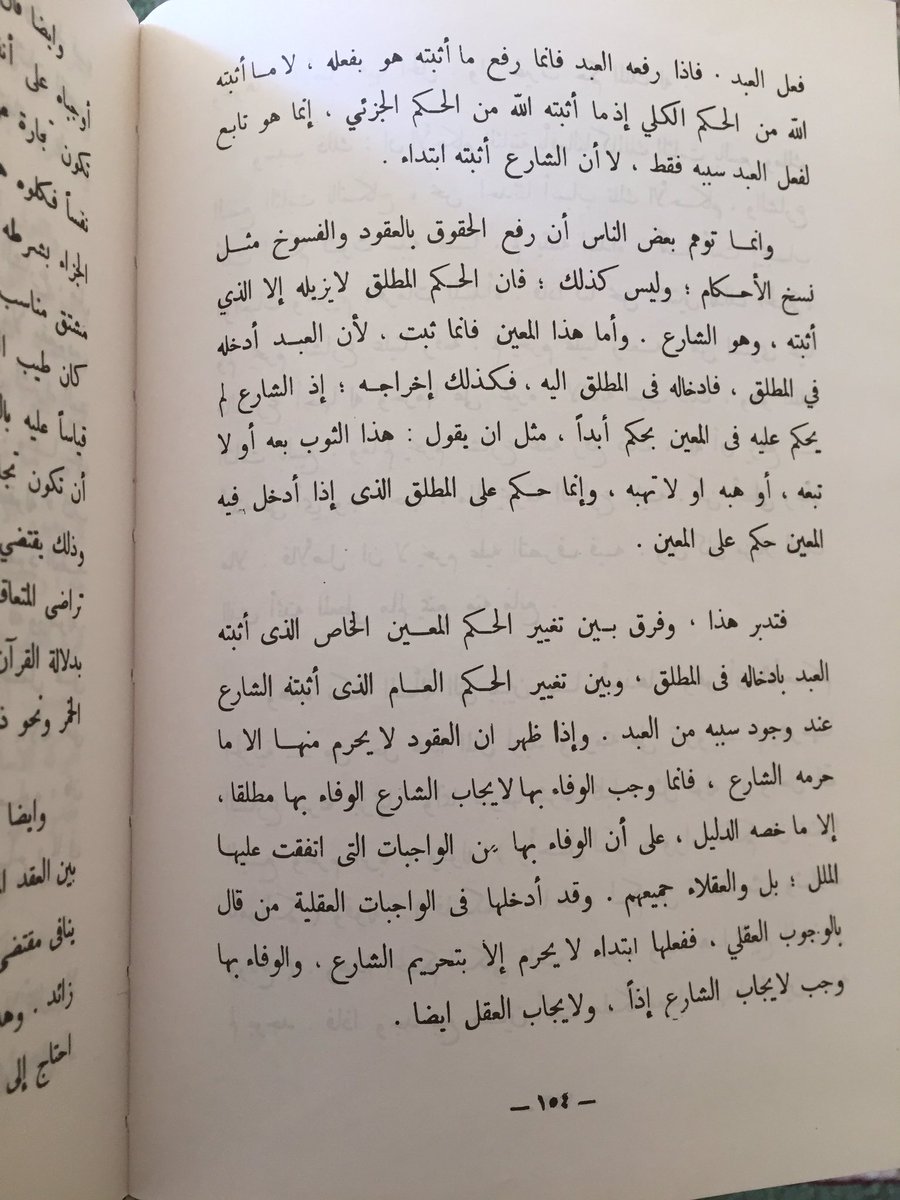 فعل العبد . فاذا رفعه العبد فانما رفع ما أثبته هو بفعله ، لا ما أثبته
الله من الحكم الكلي إذ ما أثبته الله من الحكم الجزئي ، إنما هو تابع
لفعل العبد سببه فقط ، لا أن الشارع أثبته ابتداء .
وانما توهم بعض الناس أن رفع الحقوق بالعقود والفسوخ مثل
نسخ الأحكام ؛ وليس كذلك ؛ فان الحكم المطلق لا يزيله إلا الذي
أثبته ، وهو الشارع . وأما هذا المعين فانما ثبت ، لأن العبد أدخله
في المطلق ، فادخاله فى المطلق اليه ، فكذلك إخراجه ؛ إذ الشارع لم
يحكم عليه فى المعين بحكم أبداً ، مثل ان يقول : هذا الثوب بعه أو لا
تبعه ، أو هبه او لا تهبه ، وإنما حكم على المطلق الذى إذا أدخل فيه
المعين حكم على المعين .
فتدبر هذا ، وفرق بين تغيير الحكم المعين الخاص الذى أثبته
العبد بادخاله فى المطلق ، وبين تغيير الحكم العام الذى أثبته الشارع
عند وجود سببه من العبد . وإذا ظهر ان العقود لا يحرم منها الا ما
حرمه الشارع ، فانما وجب الوفاء بها لايجاب الشارع الوفاء بها مطلقا ،
إلا ما خصه الدليل ، على أن الوفاء بها من الواجبات التى اتفقت عليها
الملل ؛ بل والعقلاء جميعهم . وقد أدخلها فى الواجبات العقلية من قال
بالوجوب العقلي ، ففعلها ابتداء لا يحرم إلا بتحريم الشارع ، والوفاء بها
وجب لايجاب الشارع إذاً ، ولايجاب العقل ايضا .
— ١٥٤ —
وايضا
أوجباه على
تكون تجارة
نفساً فكلوه
الجزاء بشرطه
مشتق مناسب
كان طيب
قياساً عليه
أن تكون
وذلك يقتضي
تراضى
بدلالة القرآن
الخمر ونحو
وايضا
بين العقد
ينافى مقتضى
زائد .
احتاج إلى